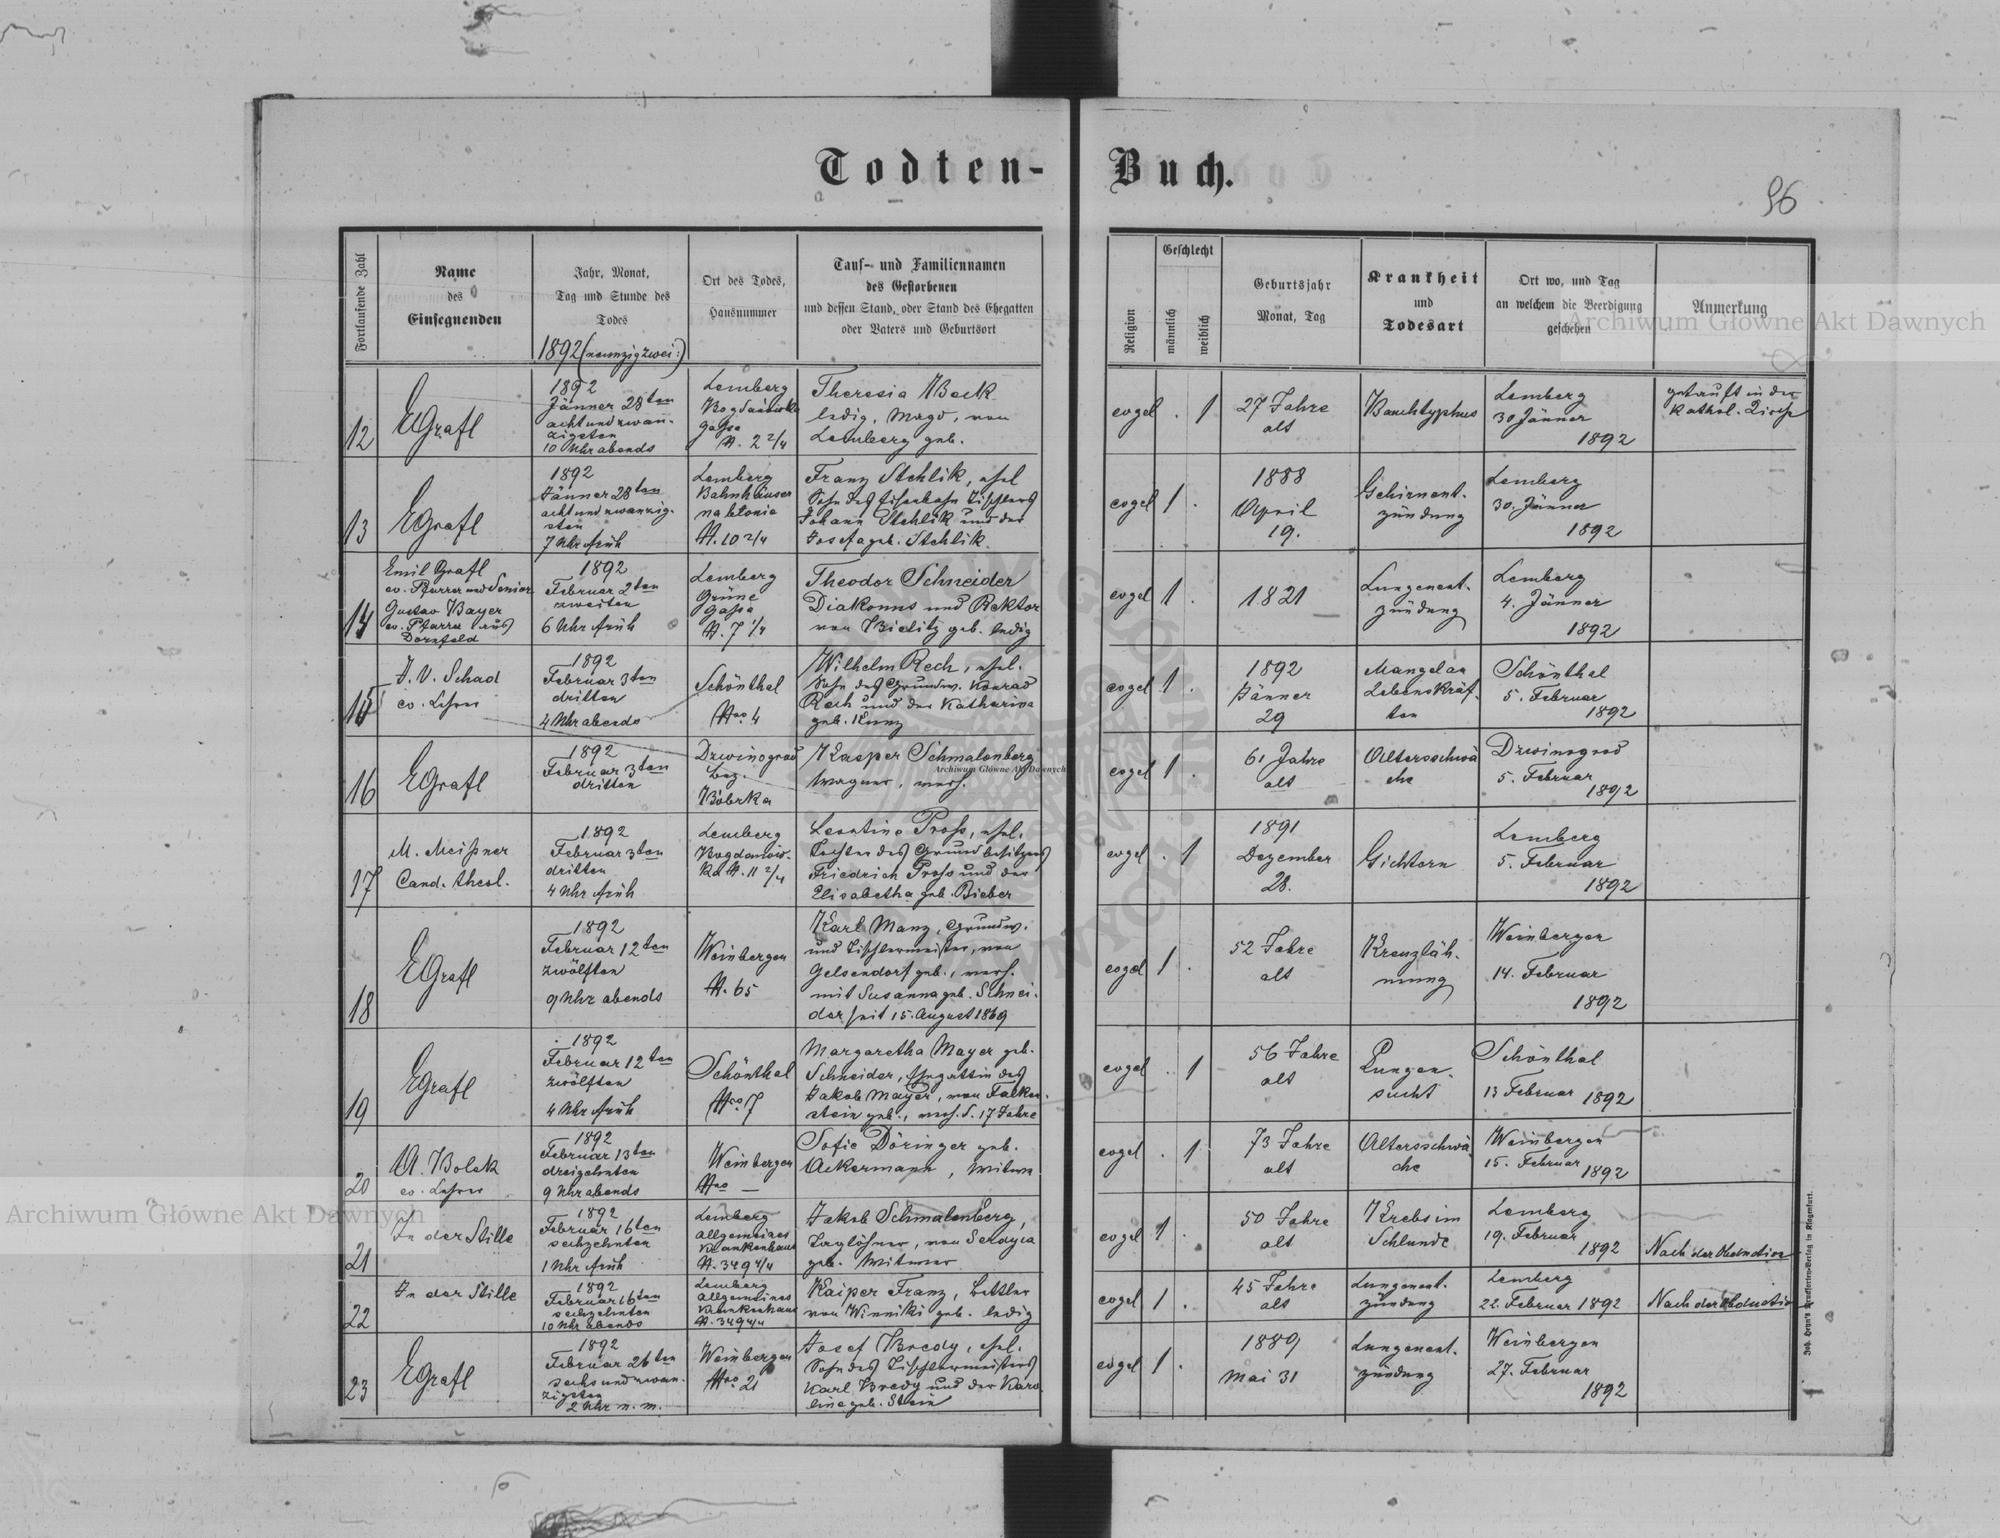 Todten-Buch.
96
Fortlaufende Zahl
Name
des
Einsegnenden
Jahr, Monat,
Tag und Stunde des
Todes
1892 (neunzigzwei:)
Ort des Todes,
Hausnummer
Tauf- und Familiennamen
des Gestorbenen
und dessen Stand, oder Stand des Ehegatten
oder Vaters und Geburtsort
Religion
Geschlecht
männlich
weiblich
Geburtsjahr
Monat, Tag
Krankheit
und
Todesart
Ort wo, und Tag
an welchem die Beerdigung
geschehen
Anmerkung
12
EGrafl
1892
Jänner 28ten
achtundzwan-
zigsten
10 Uhr abends
Lemberg
gasse
N. 2 2/4
Theresia Beck
ledig, Magd, von
Lemberg geb.
evgel
. 1
27 Jahre
alt
Bauchtyphus
Lemberg
30 Jänner
1892
getauft in der
Kathol. Kirche
13
EGrafl
1892
Jänner 28ten
achtundzwanzig-
sten
7 Uhr früh
Lemberg
Bahnhäuser
na błonie
N. 10 2/4
Franz Stehlik, ehel
Sohn des Eisenbahn Tischlers
Johann Stehlik und der
Josefa geb. Stehlik.
evgel
1 .
1888
April
19.
Gehirnent-
zündung
Lemberg
30. Jänner
1892
14
Emil Grafl
ev. Pfarrer und Senior
Gustav Bayer
ev. Pfarrer aus
Dornfeld
1892
Februar 2ten
zweiten
6 Uhr früh
Lemberg
Grüne
Gasse
N. 7 1/4
Theodor Schneider
Diakonus und Rektor
von Bielitz geb. ledig
evgel
1.
1821
Lungenent-
zündung
Lemberg
4. Jänner
1892
15
J. V. Schad
ev. Lehrer
1892
Februar 3ten
dritten
4 Uhr abends
Schönthal
Nro 4
Wilhelm Rech, ehel.
Sohn des Grundw. Konrad
Rech und der Katharina
geb. Kunz
evgel
1 .
1892
Jänner
29
Mangel an
Lebenskräf-
ten
Schönthal
5. Februar
1892
16
EGrafl
1892
Februar 3ten
dritten
Dzwinograd
bez.
Bóbrka
Kasper Schmalenberg
Wagner, verh.
evgel
1 .
61 Jahre
alt
Altersschwä
che
Dzwinograd
5. Februar
1892
17
M. Meißner
Cand. theol.
1892
Februar 3ten
dritten
4 Uhr früh
Lemberg
Bogdanow-
ka N. 11 2/4
Leontine Pross, ehel.
Tochter des Grundbesitzers
Friedrich Pross und der
Elisabetha geb. Bieber
evgel
. 1
1891
Dezember
28.
Gichtern
Lemberg
5. Februar
1892
18
EGrafl
1892
Februar 12ten
zwölften
9 Uhr abends
Weinbergen
N. 65
Karl Manz, Grundw.
und Tischlermeister, von
Gelsendorf geb., verh.
mit Susanna geb. Schnei-
der seit 15. August 1869
evgel
1 .
52 Jahre
alt
Kreuzläh-
mung
Weinbergen
14. Februar
1892
19
EGrafl
1892
Februar 12ten
zwölften
4 Uhr früh
Schönthal
Nro 7
Margaretha Mayer geb.
Schneider, Ehegattin des
Jakob Mayer, von Falken-
stein geb., verh. s. 17 Jahre
evgel
. 1
56 Jahre
alt
Lungen-
sucht
Schönthal
13 Februar 1892
20
A. Bolek
ev. Lehrer
1892
Februar 13ten
dreizehnten
9 Uhr abends
Weinbergen
Nro —
Sofie Döringer geb.
Ackermann, Witwe
evgel
. 1
73 Jahre
alt
Altersschwä
che
Weinbergen
15. Februar
1892
21
In der Stille
1892
Februar 16ten
sechzehnten
1 Uhr früh
Lemberg
allgemeines
Krankenhaus
N. 349 4/4
Jakob Schmalenberg,
Taglöhner, von
geb. Witwer
evgel
1 .
50 Jahre
alt
Krebs im
Schlunde
Lemberg
19. Februar
1892
Nach der Obduction
22
In der Stille
1892
Februar 16ten
sechzehnten
10 Uhr Abends
Lemberg
allgemeines
Krankenhaus
N. 349 4/4
Kaiper Franz, Bettler
von Winniki geb. ledig
evgel
1 .
45 Jahre
alt
Lungenent-
zündung
Lemberg
22. Februar 1892
Nach der Obduction
23
EGrafl
1892
Februar 26ten
sechsundzwan-
zigsten
2 Uhr n. m.
Weinbergen
Nro 21
Josef Bredy, ehel.
Sohn des Tischlermeisters
Karl Bredy und der Karo
line geb. Stein
evgel
1 .
1889
Mai 31
Lungenent-
zündung
Weinbergen
27. Februar
1892
Archiwum Główne Akt Dawnych
Archiwum Główne Akt Dawnych
Archiwum Główne Akt Dawnych